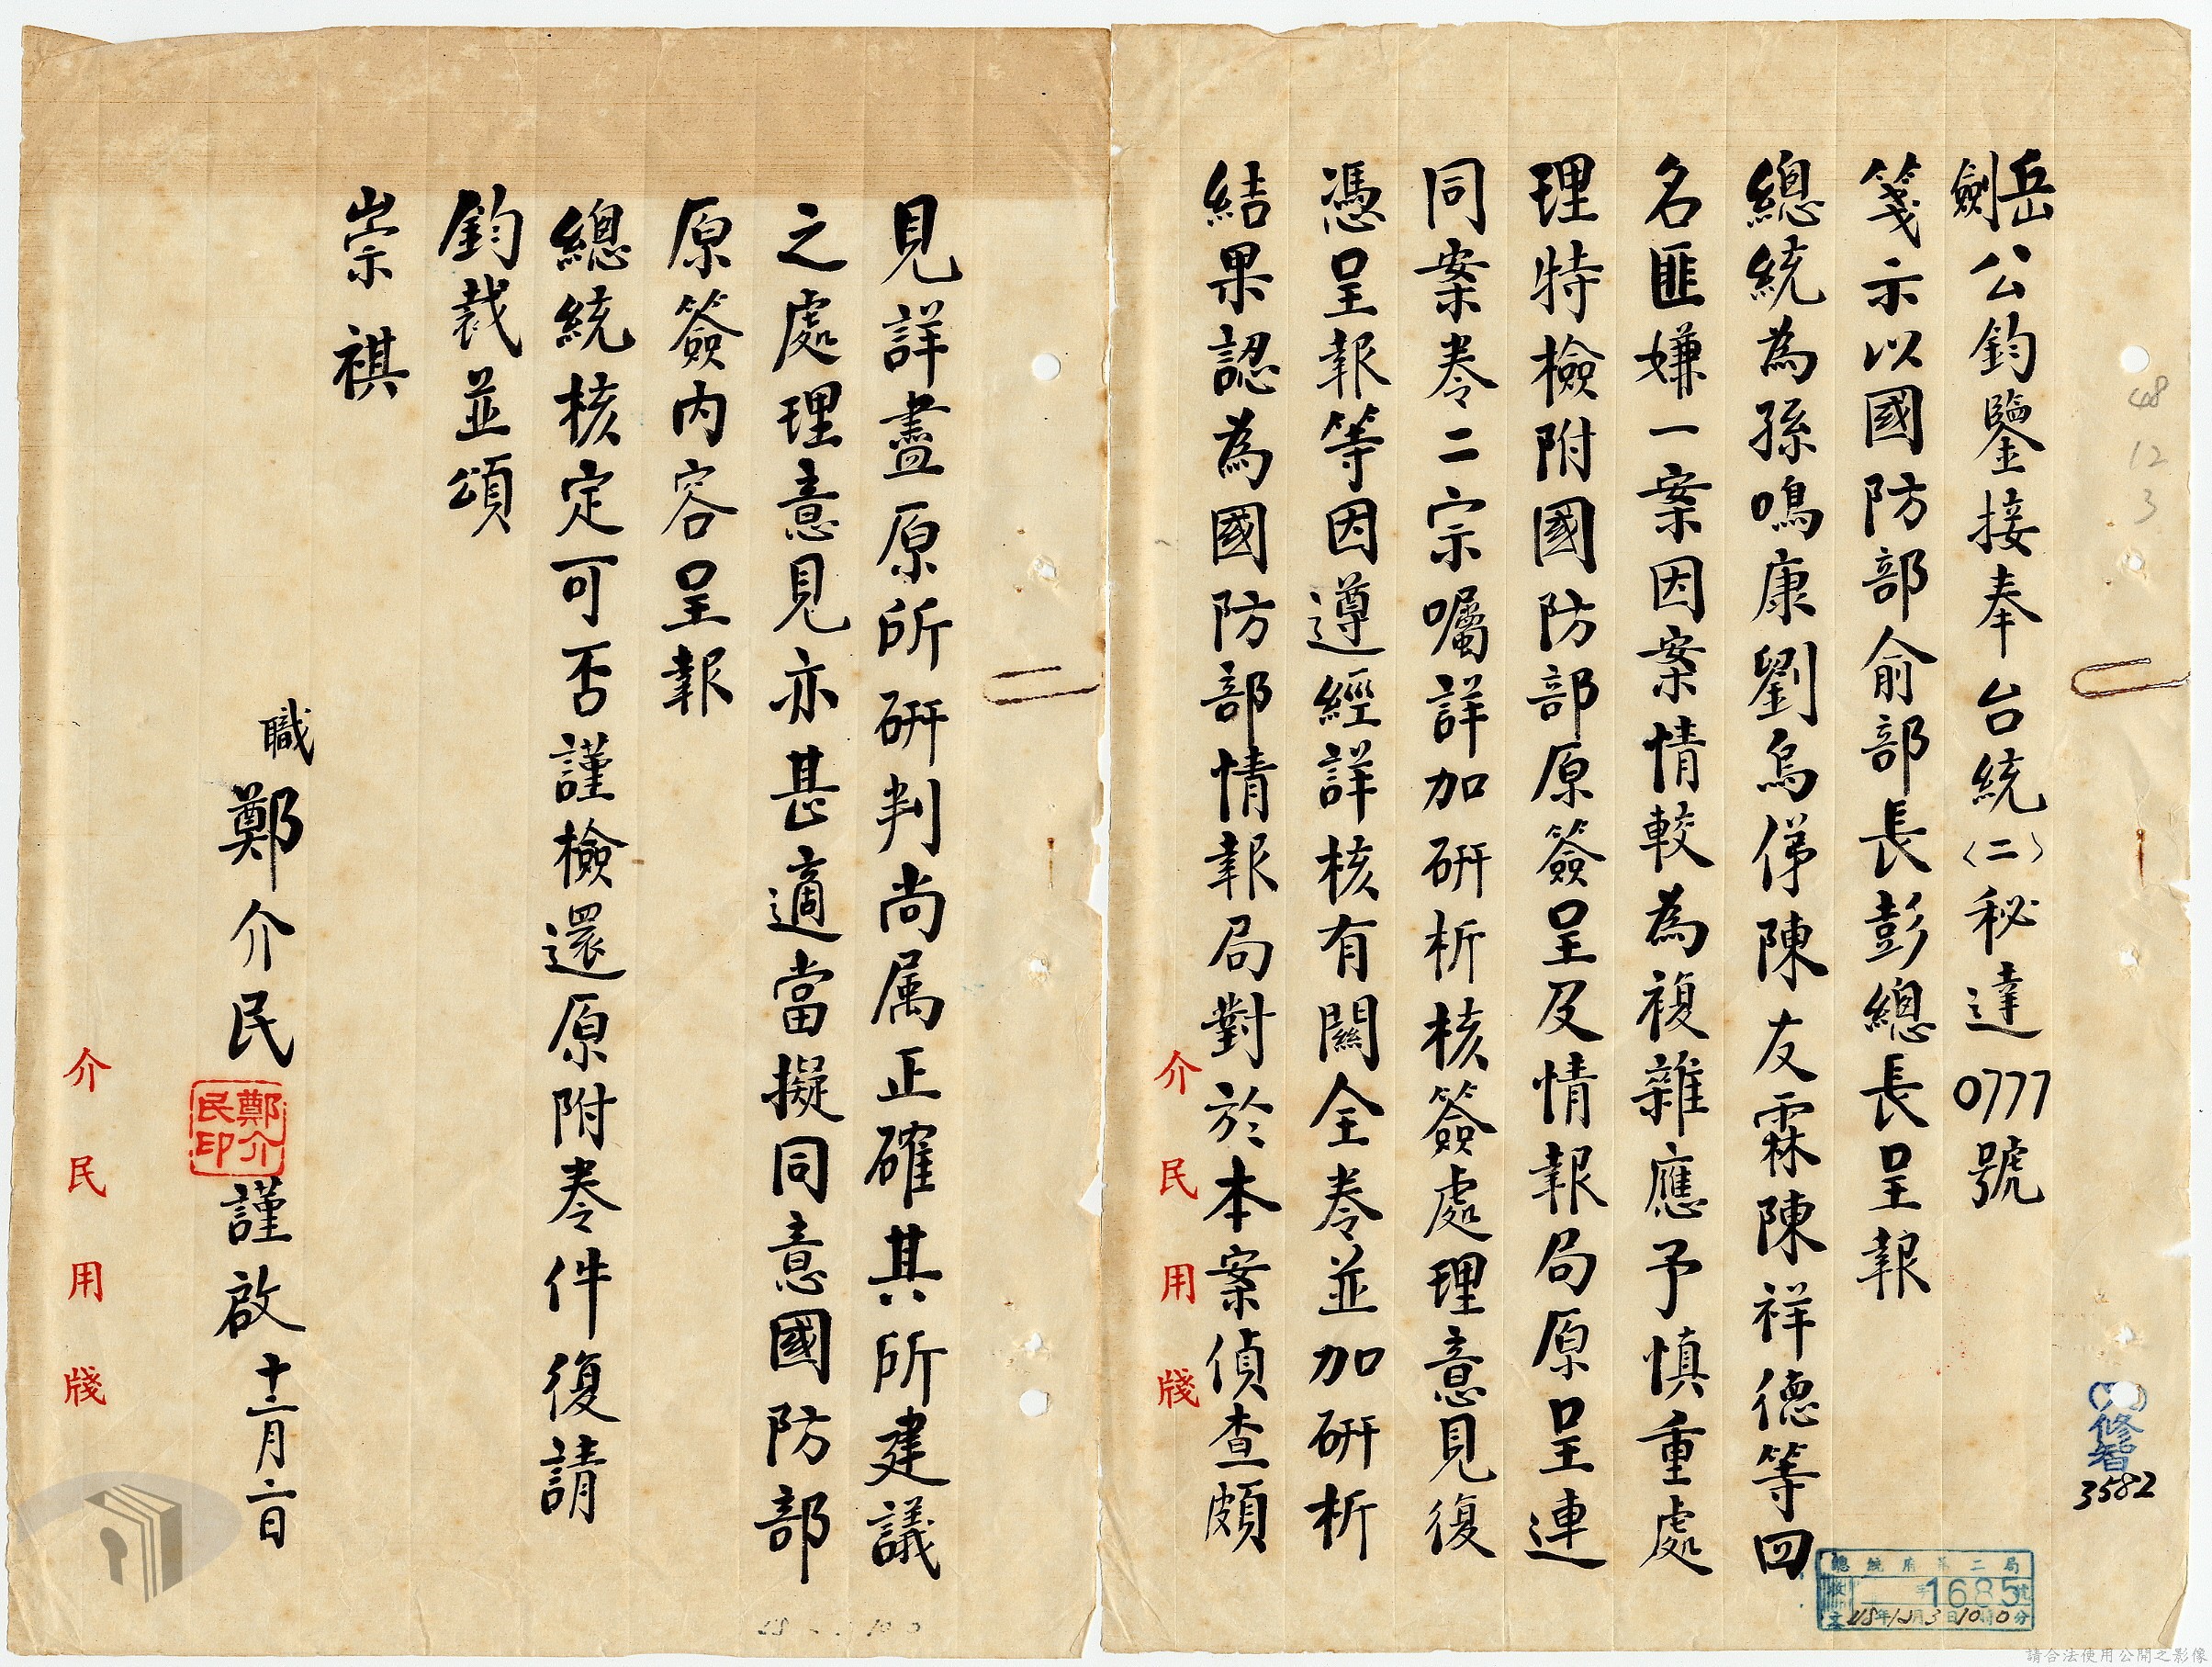 岳
劍公鈞鑒接奉台統(二)秘達0777號
箋示以國防部俞部長彭總長呈報
總統為孫鳴康劉烏俤陳友霖陳祥德等四
名匪嫌一案因案情較為複雜應予慎重處
理特檢附國防部原簽呈及情報局原呈連
同案卷二宗囑詳加研析核簽處理意見復
憑呈報等因遵經詳核有關全卷並加研析
結果認為國防部情報局對於本案偵查頗
介民用牋
見詳盡原所研判尚属正確其所建議
之處理意見亦甚適當擬同意國防部
原簽內容呈報
總統核定可否謹檢還原附卷件復請
鈞裁並頌
崇祺
職鄭介民謹啟十二月二日
鄭介民印
介民用牋
48
12
3
修智
3582
總統府第二局
收文
1685號
48年12月3日10時0分
請合法使用公開之影像